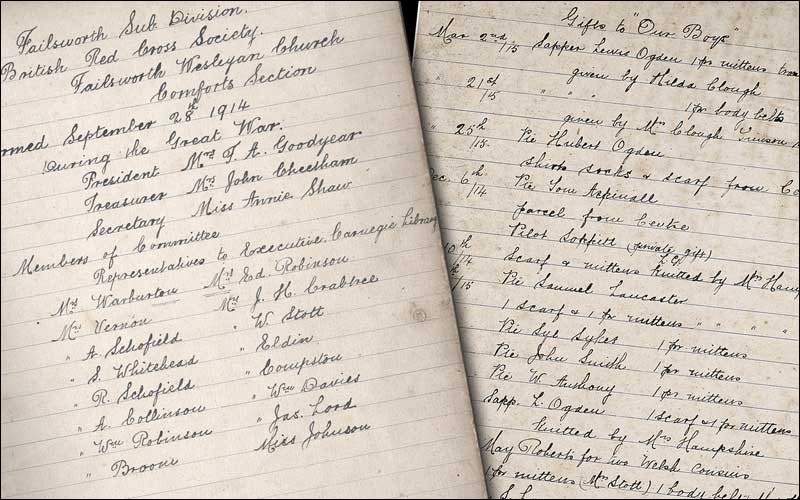 Failsworth Sub Division.
British Red Cross Society.
Failsworth Wesleyan Church
Comforts Section
ormed September 28th 1914
During the Great War.
President Mrs T. A. Goodyear
Treasurer Mrs John Cheetham
Secretary Miss Annie Shaw
Members of Committee
Representatives to Executive, Carnegie Library
Mrs Warburton Mrs Ed. Robinson
Mrs Vernon Mrs J. H. Crabtree
" A. Schofield " W. Stott
" S. Whitehead " Eldin
" R. Schofield " Compston
" A. Collinson " Wm Davies
" Wm Robinson " Jas. Lord
" Broom Miss Johnson
Gifts to "Our Boys"
Mar 2nd/15 Sapper Lewis Ogden 1 pr mittens
given by Hilda Clough
" 21st/15 " " " 1 pr body belts
given by Mrs Clough
" 25th/15. Pte Hubert Ogden
shirts socks & scarf from
ec. 6th/14 Pte Tom Aspinall
parcel from Centre
Pilot Soppitt (private gift)
10th/14 Scarf & mittens knitted by Mrs Hamp
th/15 Pte Samuel Lancaster
1 scarf & 1 pr mittens " " "
Pte Syl Sykes 1 pr mittens
Pte John Smith 1 pr mittens
Pte W. Anthony 1 pr mittens
Sapp. L. Ogden 1 scarf & 1 pr mittens
Knitted by Mrs Hampshire
May Roberts for two Welsh cousins
1 pr mittens (Mrs Stott) 1 body belt